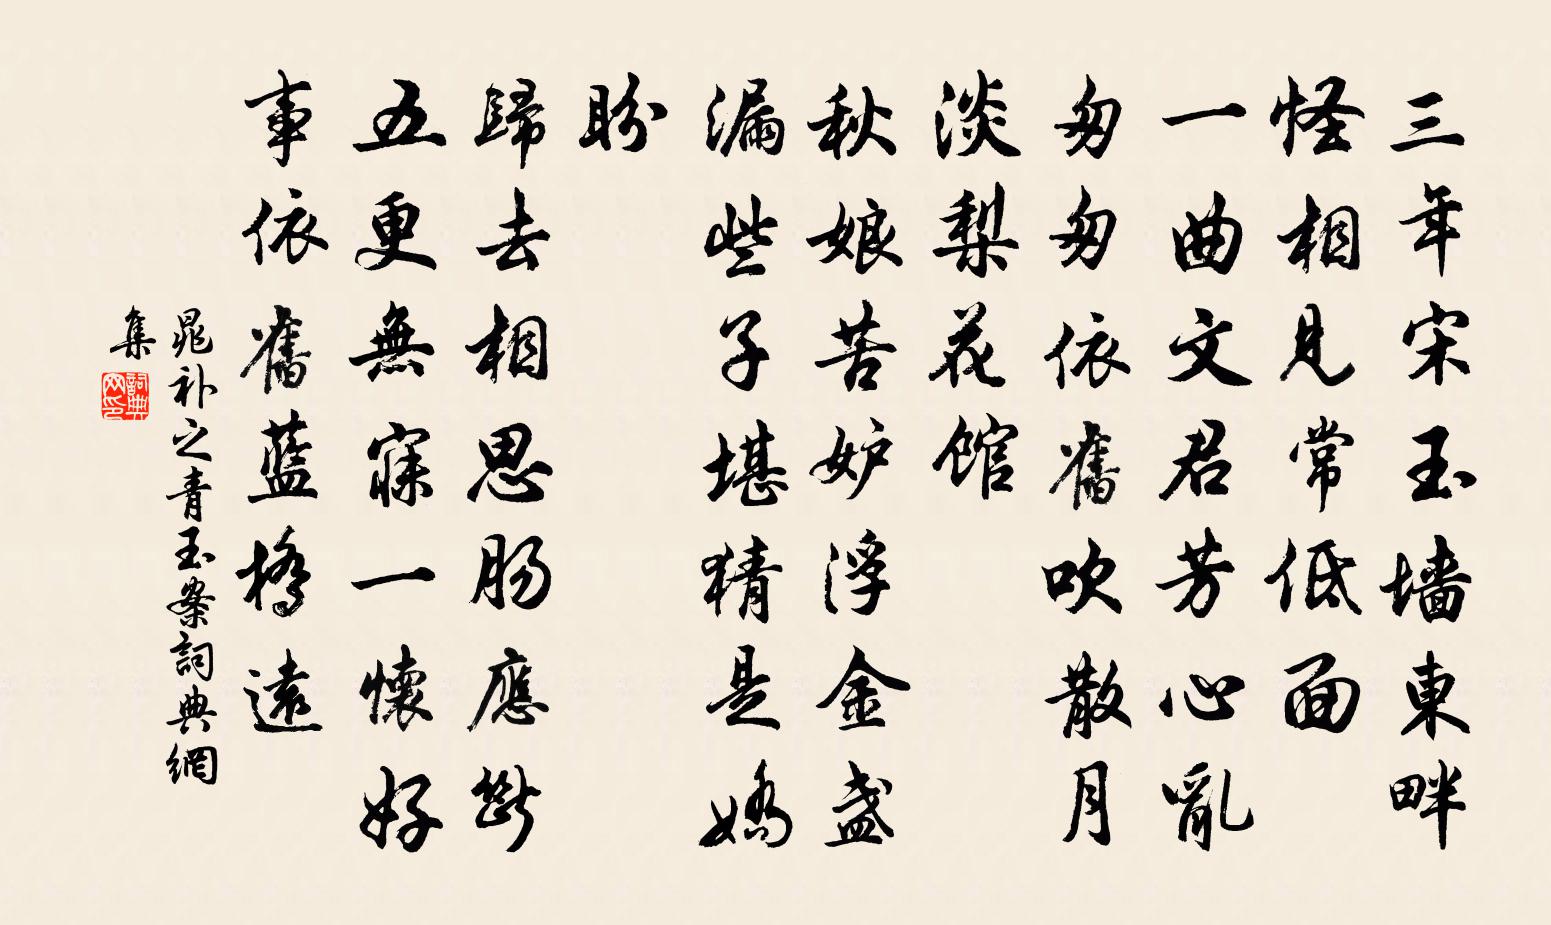 三年宋玉墻東畔
怪相見常低面
一曲文君芳心亂
匆匆依舊吹散月
淡梨花館
秋娘苦妒浮金盞
漏些子堪猜是嬌
盼
歸去相思腸應斷
五更無寐一懷好
事依舊藍橋遠
晁补之青玉案詞典網
集
詞典网印